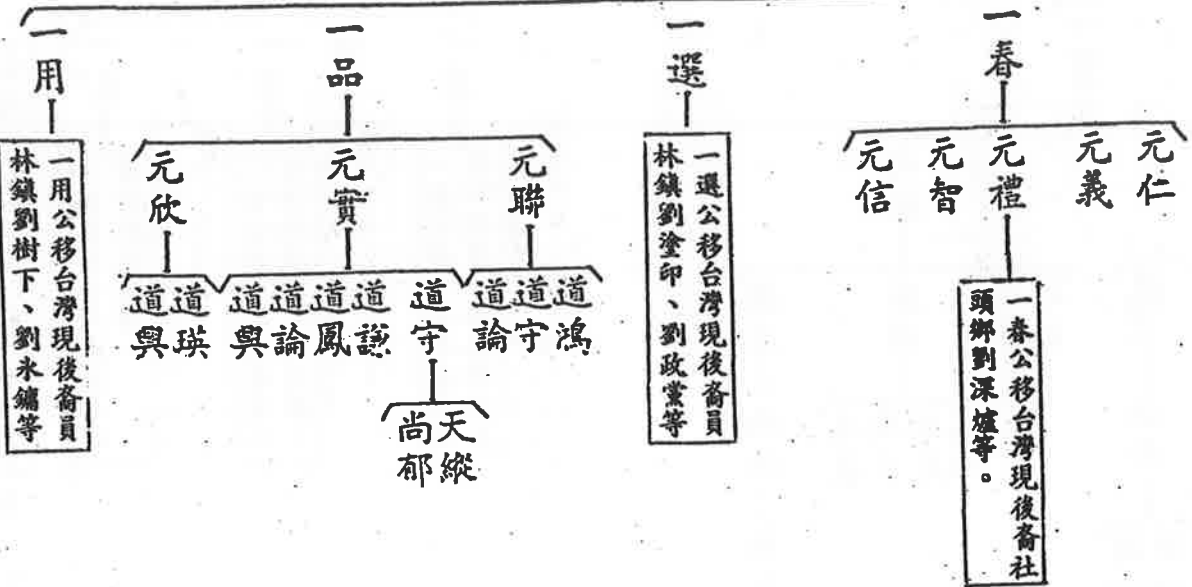 一春
元仁
元義
元禮
元智
元信
一春公移台灣現後裔社
頭鄉劉深爐等。
一選
一選公移台灣現後裔員
林鎮劉塗印、劉政黨等
一品
元聯
道鴻
道守
道論
元實
道守
天縱
尚郁
道謙
道鳳
道論
道興
元欣
道瑛
道興
一用
一用公移台灣現後裔員
林鎮劉樹下、劉永鏞等